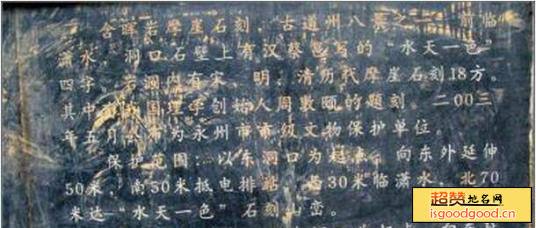 含晖岩摩崖石刻,古道州八景之一,前临
潇水,洞口石壁上有汉蔡邕写的“水天一色”
四字。岩洞内有宋、明、清历代摩崖石刻18方。
其中 国理学创始人周敦颐的题刻。二00三
年五月 为永州市市级文物保护单位。
保护范围:以东洞口为起点,向东外延伸
50米,南50米抵电排站,西30米临潇水,北70
米达“水天一色”石刻山峦。
超赞地名网
isgoodgood.cn